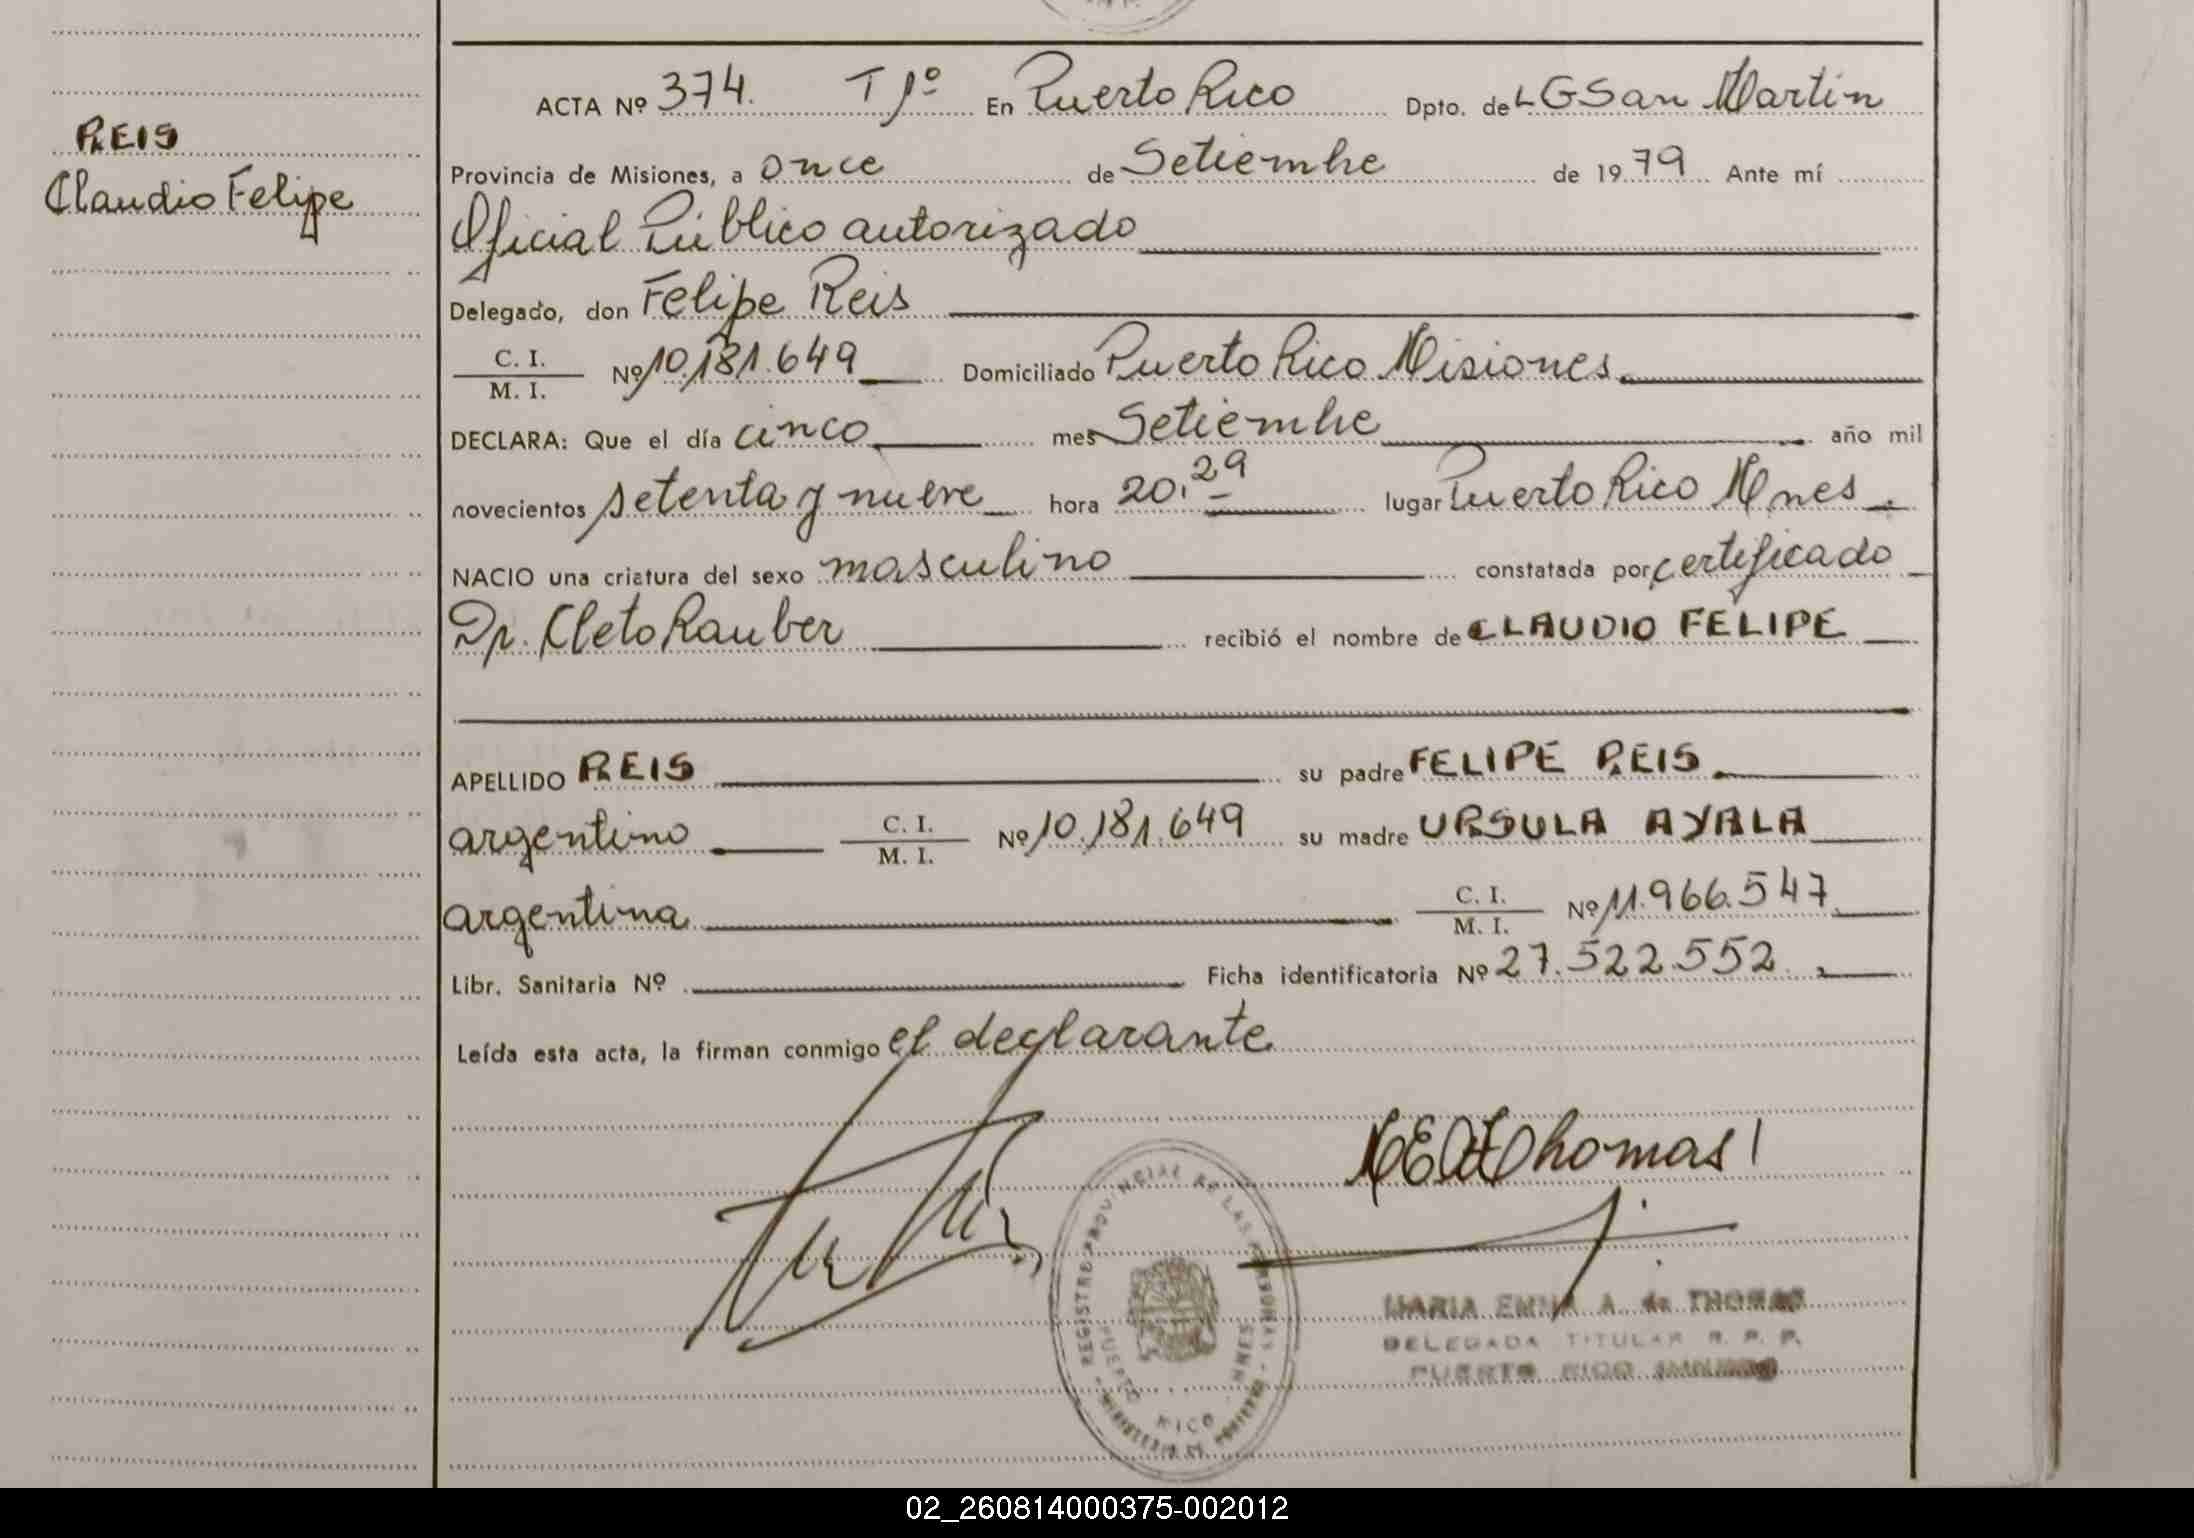 REIS
Claudio Felipe
ACTA Nº 374. T 1º En Puerto Rico Dpto. de LGSan Martin
Provincia de Misiones, a once de Setiembre de 1979 Ante mí
Oficial Público autorizado
Delegado, don Felipe Reis
C. I.
M. I.
Nº 10.181.649 Domiciliado Puerto Rico Misiones
DECLARA: Que el día cinco mes Setiembre año mil
novecientos setenta y nueve hora 20.29 lugar Puerto Rico Mnes
NACIO una criatura del sexo masculino constatada por certificado
Dr. Cleto Rauber recibió el nombre de CLAUDIO FELIPE
APELLIDO REIS su padre FELIPE REIS
argentino C. I.
M. I.
Nº 10.181.649 su madre URSULA AYALA
argentina C. I.
M. I.
Nº 11.966.547
Libr. Sanitaria Nº Ficha identificatoria Nº 27.522.552
Leída esta acta, la firman conmigo el declarante
Thomas
REGISTRO PROVINCIAL DE LAS PERSONAS
PUERTO RICO - MNES
MINISTERIO DE GOBIERNO
MARIA EMMA A. de THOMAS
DELEGADA TITULAR R. P. P.
PUERTO RICO
02_260814000375-002012